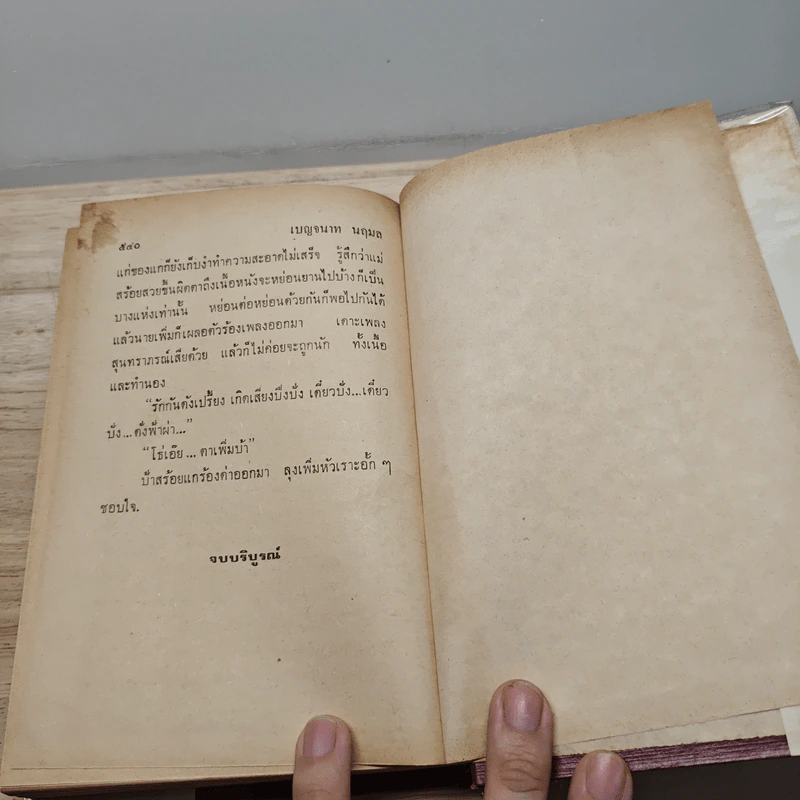 ๕๔๐ เบญจนาท นฤมล
แก่ของแกก็ยังเก็บงำทำความสะอาดไม่เสร็จ รู้สึกว่าแม่
สร้อยสวยขึ้นผิดตาถึงเนื้อหนังจะหย่อนยานไปบ้างก็เป็น
บางแห่งเท่านั้น หย่อนต่อหย่อนด้วยกันก็พอไปกันได้
แล้วนายเพิ่มก็เผลอตัวร้องเพลงออกมา เดาะเพลง
สุนทราภรณ์เสียด้วย แล้วก็ไม่ค่อยจะถูกนัก ทั้งเนื้อ
และทำนอง
“รักกันดังเปรี้ยง เกิดเสียงบึงบั่ง เดี๋ยวบั่ง...เดี๋ยว
บั่ง...ดั่งฟ้าผ่า...”
“โธ่เอ๊ย...ตาเพิ่มบ้า”
ป้าสร้อยแกร้องด่าออกมา ลุงเพิ่มหัวเราะอั้ก ๆ
ชอบใจ.
จบบริบูรณ์